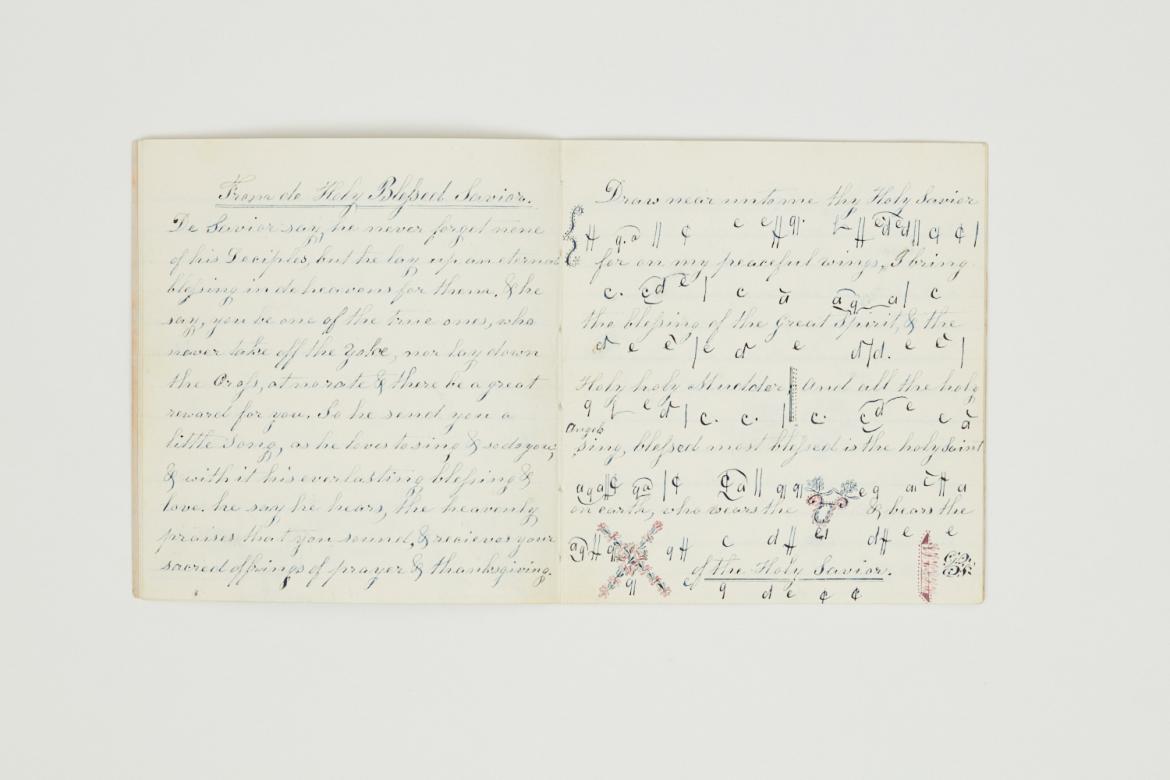 From de Holy Blessed Savior.
De Savior say, he never forget none
of his Deciples, but he lay up an eternal
blessing in de heavens for them. & he
say, you be one of the true ones, who
never take off the Yoke, nor lay down
the Cross, at no rate & there be a great
reward for you. So he send you a
little Song, as he loves to sing & so do you;
& with it his everlasting blessing &
love. he say he hears, the heavenly
praises that you sound, & recieves your
sacred offrings of prayer & thanksgiving.
Draw near unto me thy Holy Savior
for on my peaceful wings, I bring
the blessing of the great Spirit, & the
Holy holy Mudder And all the holy
Angels
sing, blessed most blessed is the holy saint
on earth, who wears the & bears the
of the Holy Savior.